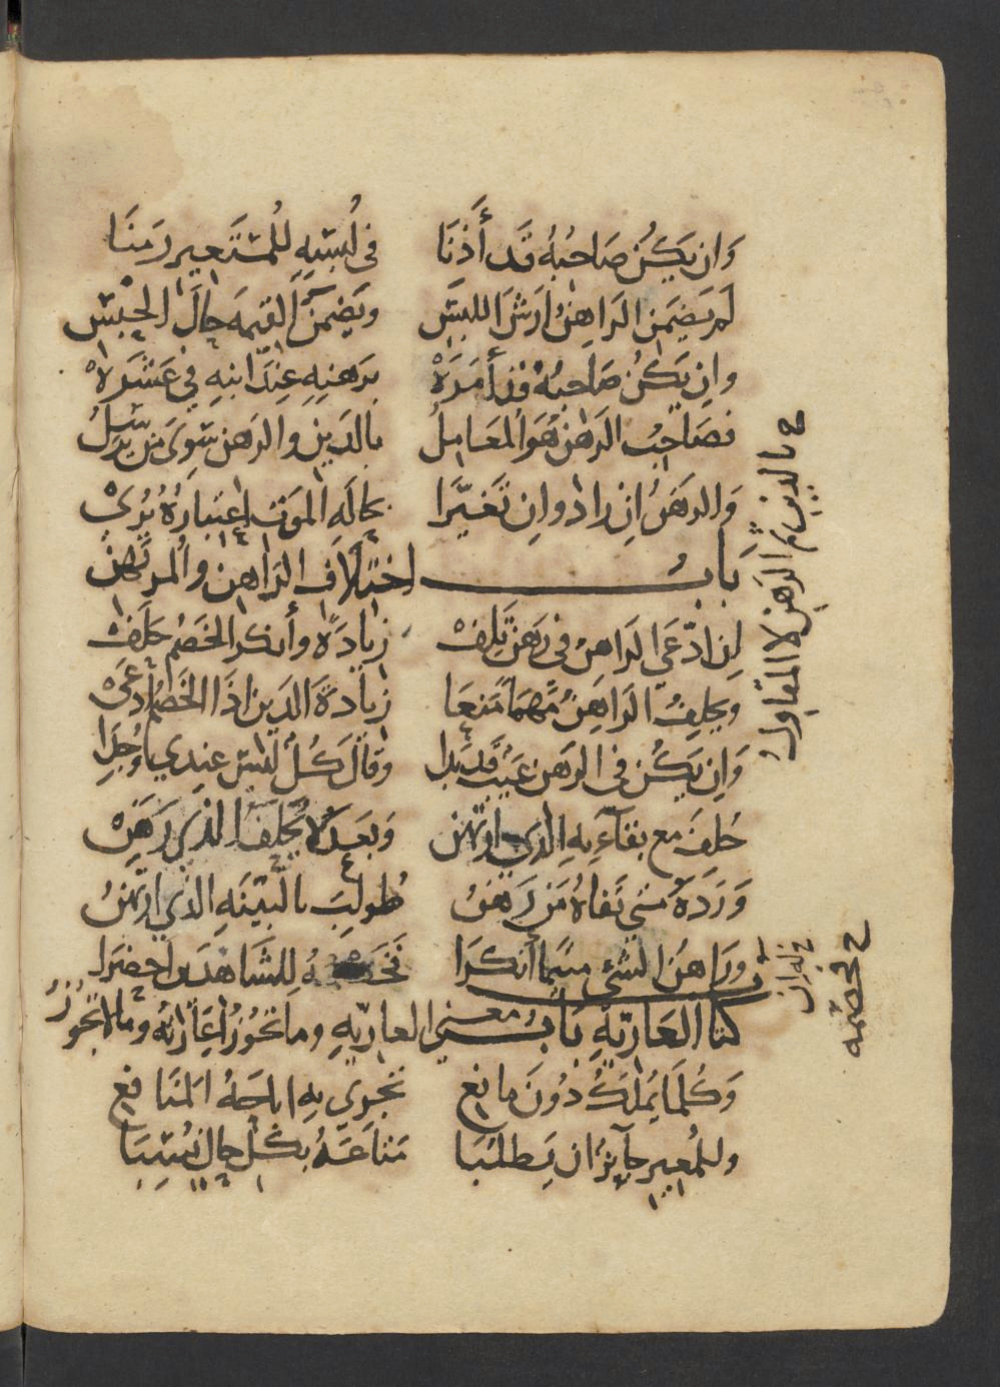 وَان يَكُن صَاحبُهُ قَد أَذِنَا في لُبسِهِ لِلمُستَعِير زمنَا
لَم يَضمَن الرَاهِنُ ارَشَ اللبسَ وَيَضمَنَ القيمَه حالَ الحبس
وان يَكُن صَاحبُهُ قد أَمَرَهْ بَرَهنِهِ عِندَ ابنِهِ في عَشَرَهْ
فصَاحِبُ الرهن هُوَ المعَامِلُ بالدَين والرَهن سِوَى من
وَالرهَنُ ان زاد وان تَغيَّرا بحالَهِ الموَت اعتبارُهُ يُرَى
بَابُ اختلاف الرَاهن والمرتَهن
ان ادّعَى الراهنُ في رَهن تَلِفْ زيادَةً وأنكر الخَصمُ حَلَفْ
ويحلِفُ الرَاهِنُ مَهمَا مَنعَا زيادَةَ الدَين اذَا الخَصمُ ادعَى
وَان يَكُن في الرهن عَيبٌ قَد بَدا وَقالَ كُلٌ ليس عِندي
حُلفَ مع بقآءِ بهِ الذي ارتهن وَبَعدُ لا يُحَلفُ الذي رَهَنْ
وَرَدَهُ متي نَفاهُ مَن رَهَنُ طُولِبَ بالبَيّنَهِ الذي ارتَهنُ
وَراهنُ الشَيء متىَما أنكرَا للشَاهدَين احضَرا
كتا العَاريّهِ بَابُ معنى العاريّهِ وما تَجُوزُ اعَارَتُه وما لا تَجُوزُ
وَكُلمَا يُملَكُ دُونَ مانِع تَجري بهِ اباحَهُ المنَافِع
وللمُعِير جآئزٌ ان يَطلُبَا مَتَاعَهُ بكُل حالٍ
خ بالدين ثم الرَهن لا المقاول
خ له ان
خ خصمه